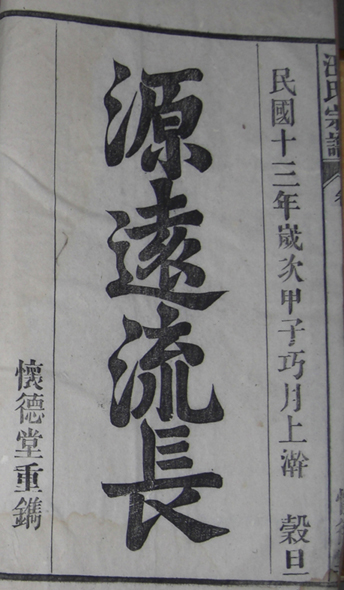 汪氏宗譜
民國十三年歲次甲子巧月上澣 穀旦
源遠流長
懷德堂重鐫